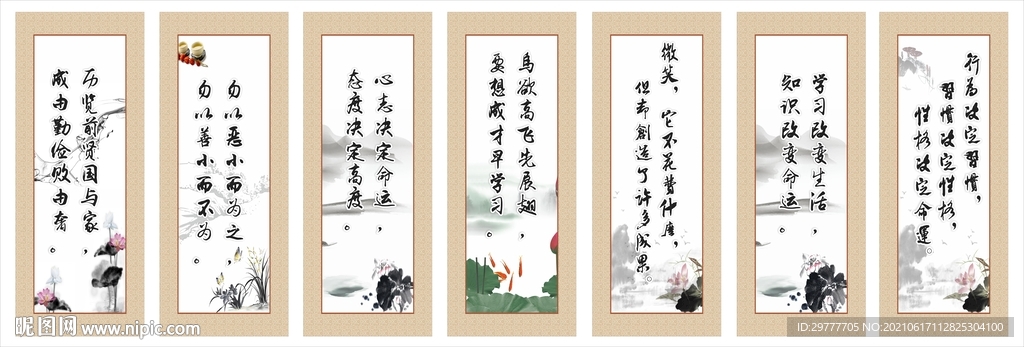 历览前贤国与家，
成由勤俭败由奢。
勿以恶小而为之，
勿以善小而不为。
心志决定命运，
态度决定高度。
鸟欲高飞先展翅，
要想成才早学习。
微笑，它不花费什么，
但却創造了许多成果。
学习改变生活，
知识改变命运。
行为决定習慣，
習慣决定性格，
性格决定命運。
昵图网 www.nipic.com
ID:29777705 NO:20210617112825304100